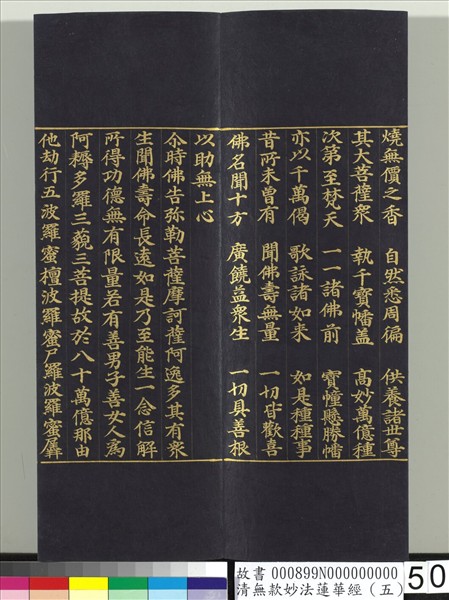 燒無價之香　自然悉周徧　供養諸世尊
其大菩薩衆　執千寶幡蓋　高妙萬億種
次第至梵天　一一諸佛前　寶幢懸勝幡
亦以千萬偈　歌詠諸如来　如是種種事
昔所未曾有　聞佛壽無量　一切皆歡喜
佛名聞十方　廣饒益衆生　一切具善根
以助無上心
尒時佛告弥勒菩薩摩訶薩阿逸多其有衆
生聞佛壽命長遠如是乃至能生一念信解
所得功德無有限量若有善男子善女人為
阿耨多羅三藐三菩提故於八十萬億那由
他劫行五波羅蜜檀波羅蜜尸羅波羅蜜羼
故書 000899N000000000
清無款妙法蓮華經（五）
50